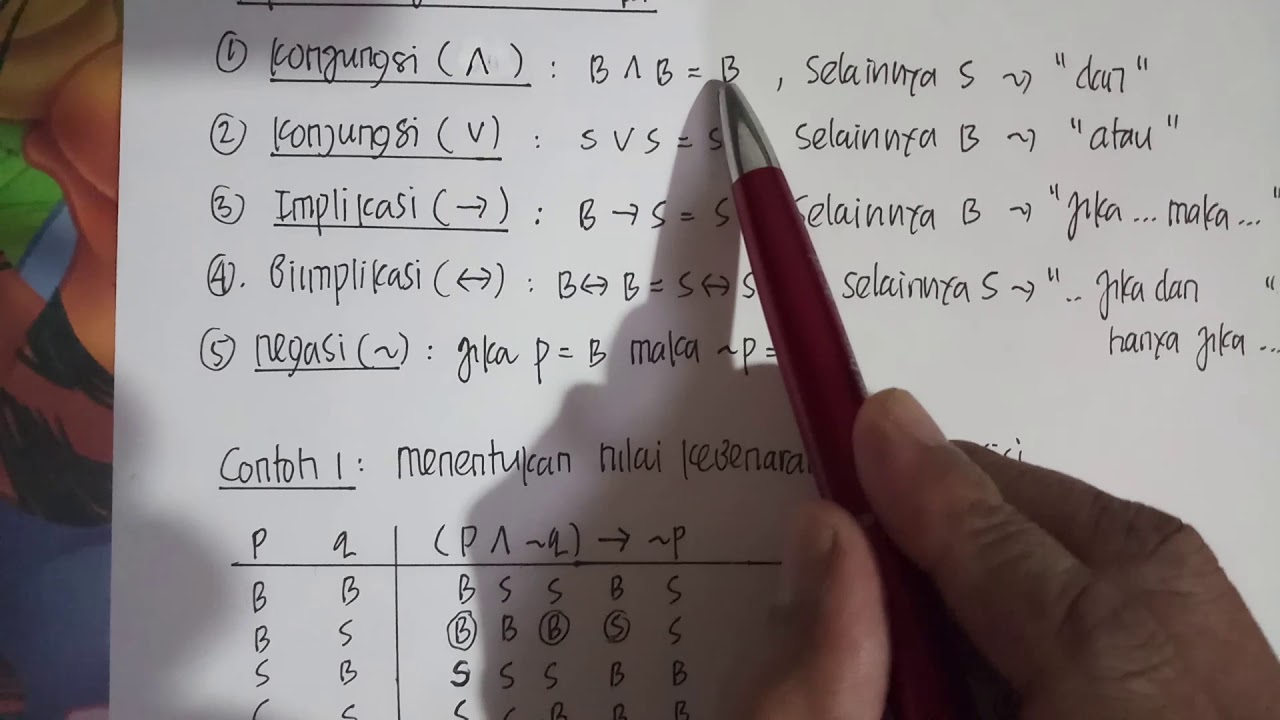 ① Konjungsi (∧) : B ∧ B = B , Selainnya S ⤳ "dan"
② Konjungsi (∨) : S ∨ S = S Selainnya B ⤳ "atau"
③ Implikasi (→) : B → S = S Selainnya B ⤳ "jika ... maka ..."
④. Biimplikasi (↔) : B ↔ B = S ↔ S selainnya S ⤳ ".. jika dan "
hanya jika ...
⑤ negasi (~) : jika p = B maka ~p =
Contoh 1 : menentukan nilai
p q (p ∧ ~q) → ~p
B B B S S B S
B S Ⓑ B Ⓑ Ⓢ S
S B S S S B B
S S S S B B B